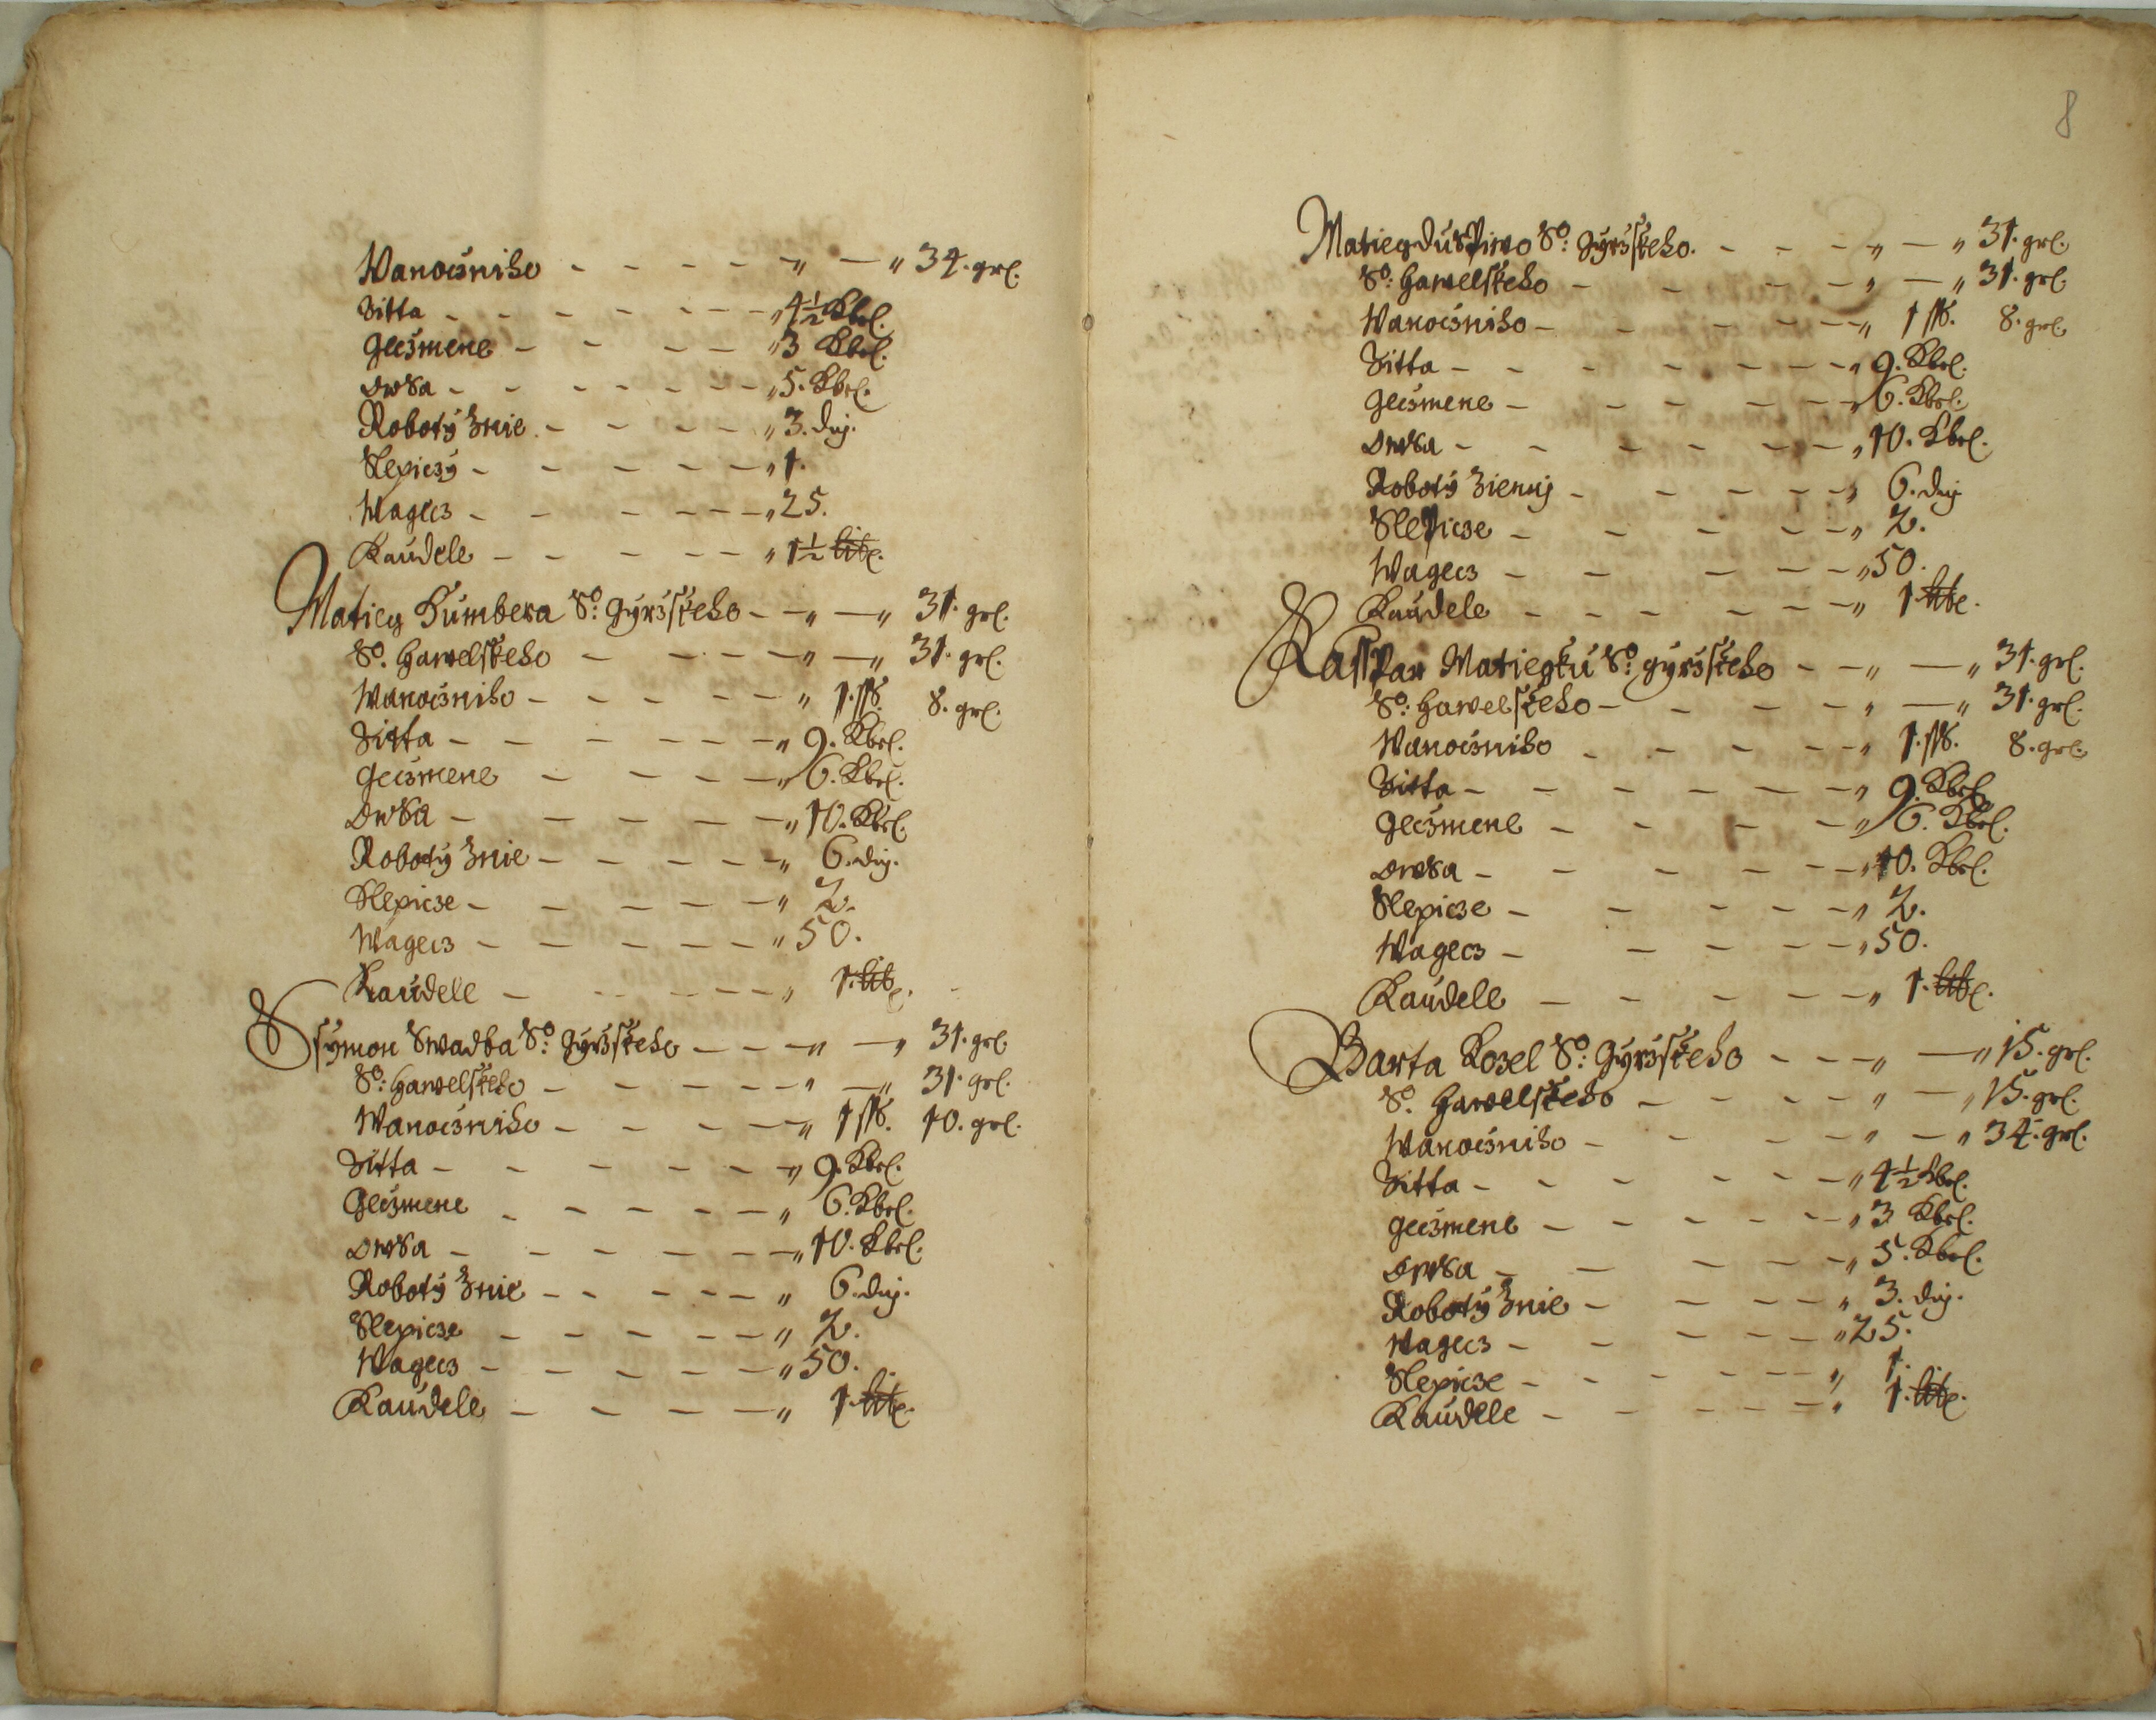 Wanocźniho - - - - - „ — „ 34. grl.
Žitta - - - - - - - „ 4½ Kbel.
Gecźmene - - - - - „ 3 Kbel.
Owsa - - - - - - - „ 5. Kbel.
Robotÿ Žnie - - - - „ 3. dnj.
Slepiczÿ - - - - - - „ 1.
Wagecz - - - - - - „ 25.
Kaudele - - - - - - „ 1½ lib.
Matieg Kumbera So: Gyržskeho - - „ — „ 31. grl.
So. Hawelskeho - - - - - „ — „ 31. grl.
Wanocźniho - - - - - - „ 1. ss. 8. grl.
Žitta - - - - - - - „ 9. Kbel.
Gecźmene - - - - - „ 6. Kbel.
Owsa - - - - - - „ 10. Kbel.
Robotÿ Žnie - - - - - - „ 6. dnj.
Slepicze - - - - - - „ 2.
Wagecz - - - - - - „ 50.
Kaudele - - - - - - „ 1. lib.
Ssymon Swadba So: Gyržskeho - - - „ — „ 31. grl.
So: Hawelskeho - - - - - - „ — „ 31. grl.
Wanocźniho - - - - - - „ 1 ss. 10. grl.
Žitta - - - - - - - „ 9. Kbel.
Gecźmene - - - - - - „ 6. Kbel.
Owsa - - - - - - - „ 10. Kbel.
Robotÿ Žnie - - - - - - „ 6. dnj.
Slepicze - - - - - - „ 2.
Wagecz - - - - - - „ 50.
Kaudele - - - - - „ 1. lib.
8
Matieg Duspiwo So: Gyržskeho. - - - „ — „ 31. grl.
So: Hawelskeho - - - - - „ — „ 31. grl.
Wanocźniho - - - - - - „ 1 ss. 8. grl.
Žitta - - - - - - - „ 9. Kbel.
Gecźmene - - - - - - „ 6. Kbel.
Owsa - - - - - - - „ 10. Kbel.
Robotÿ Žennj - - - - - „ 6. dnj
Slepicze - - - - - - „ 2.
Wagecz - - - - - - „ 50.
Kaudele - - - - - - - „ 1 lib.
Kasspar Matiegku So: Gyržskeho - - „ — „ 31. grl.
So: Hawelskeho - - - - - „ — „ 31. grl.
Wanocźniho - - - - - - „ 1. ss. 8. grl.
Žitta - - - - - - - „ 9. Kbel.
Gecźmene - - - - - „ 6. Kbel.
Owsa - - - - - - „ 10. Kbel.
Slepicze - - - - - - „ 2.
Wagecz - - - - - - „ 50.
Kaudele - - - - - - „ 1. lib.
Barta Kozel So: Gyržskeho - - - „ — „ 15. grl.
So. Hawelskeho - - - - - „ — „ 15. grl.
Wanocźniho - - - - - „ — „ 34. grl.
Žitta - - - - - - - „ 4½ kbel.
Gecźmene - - - - - - „ 3 Kbel.
Owsa - - - - - - „ 5. Kbel.
Robotÿ Žnie - - - - - „ 3. dnj.
Wagecz - - - - - - „ 25.
Slepicze - - - - - - - „ 1.
Kaudele - - - - - - „ 1. lib.